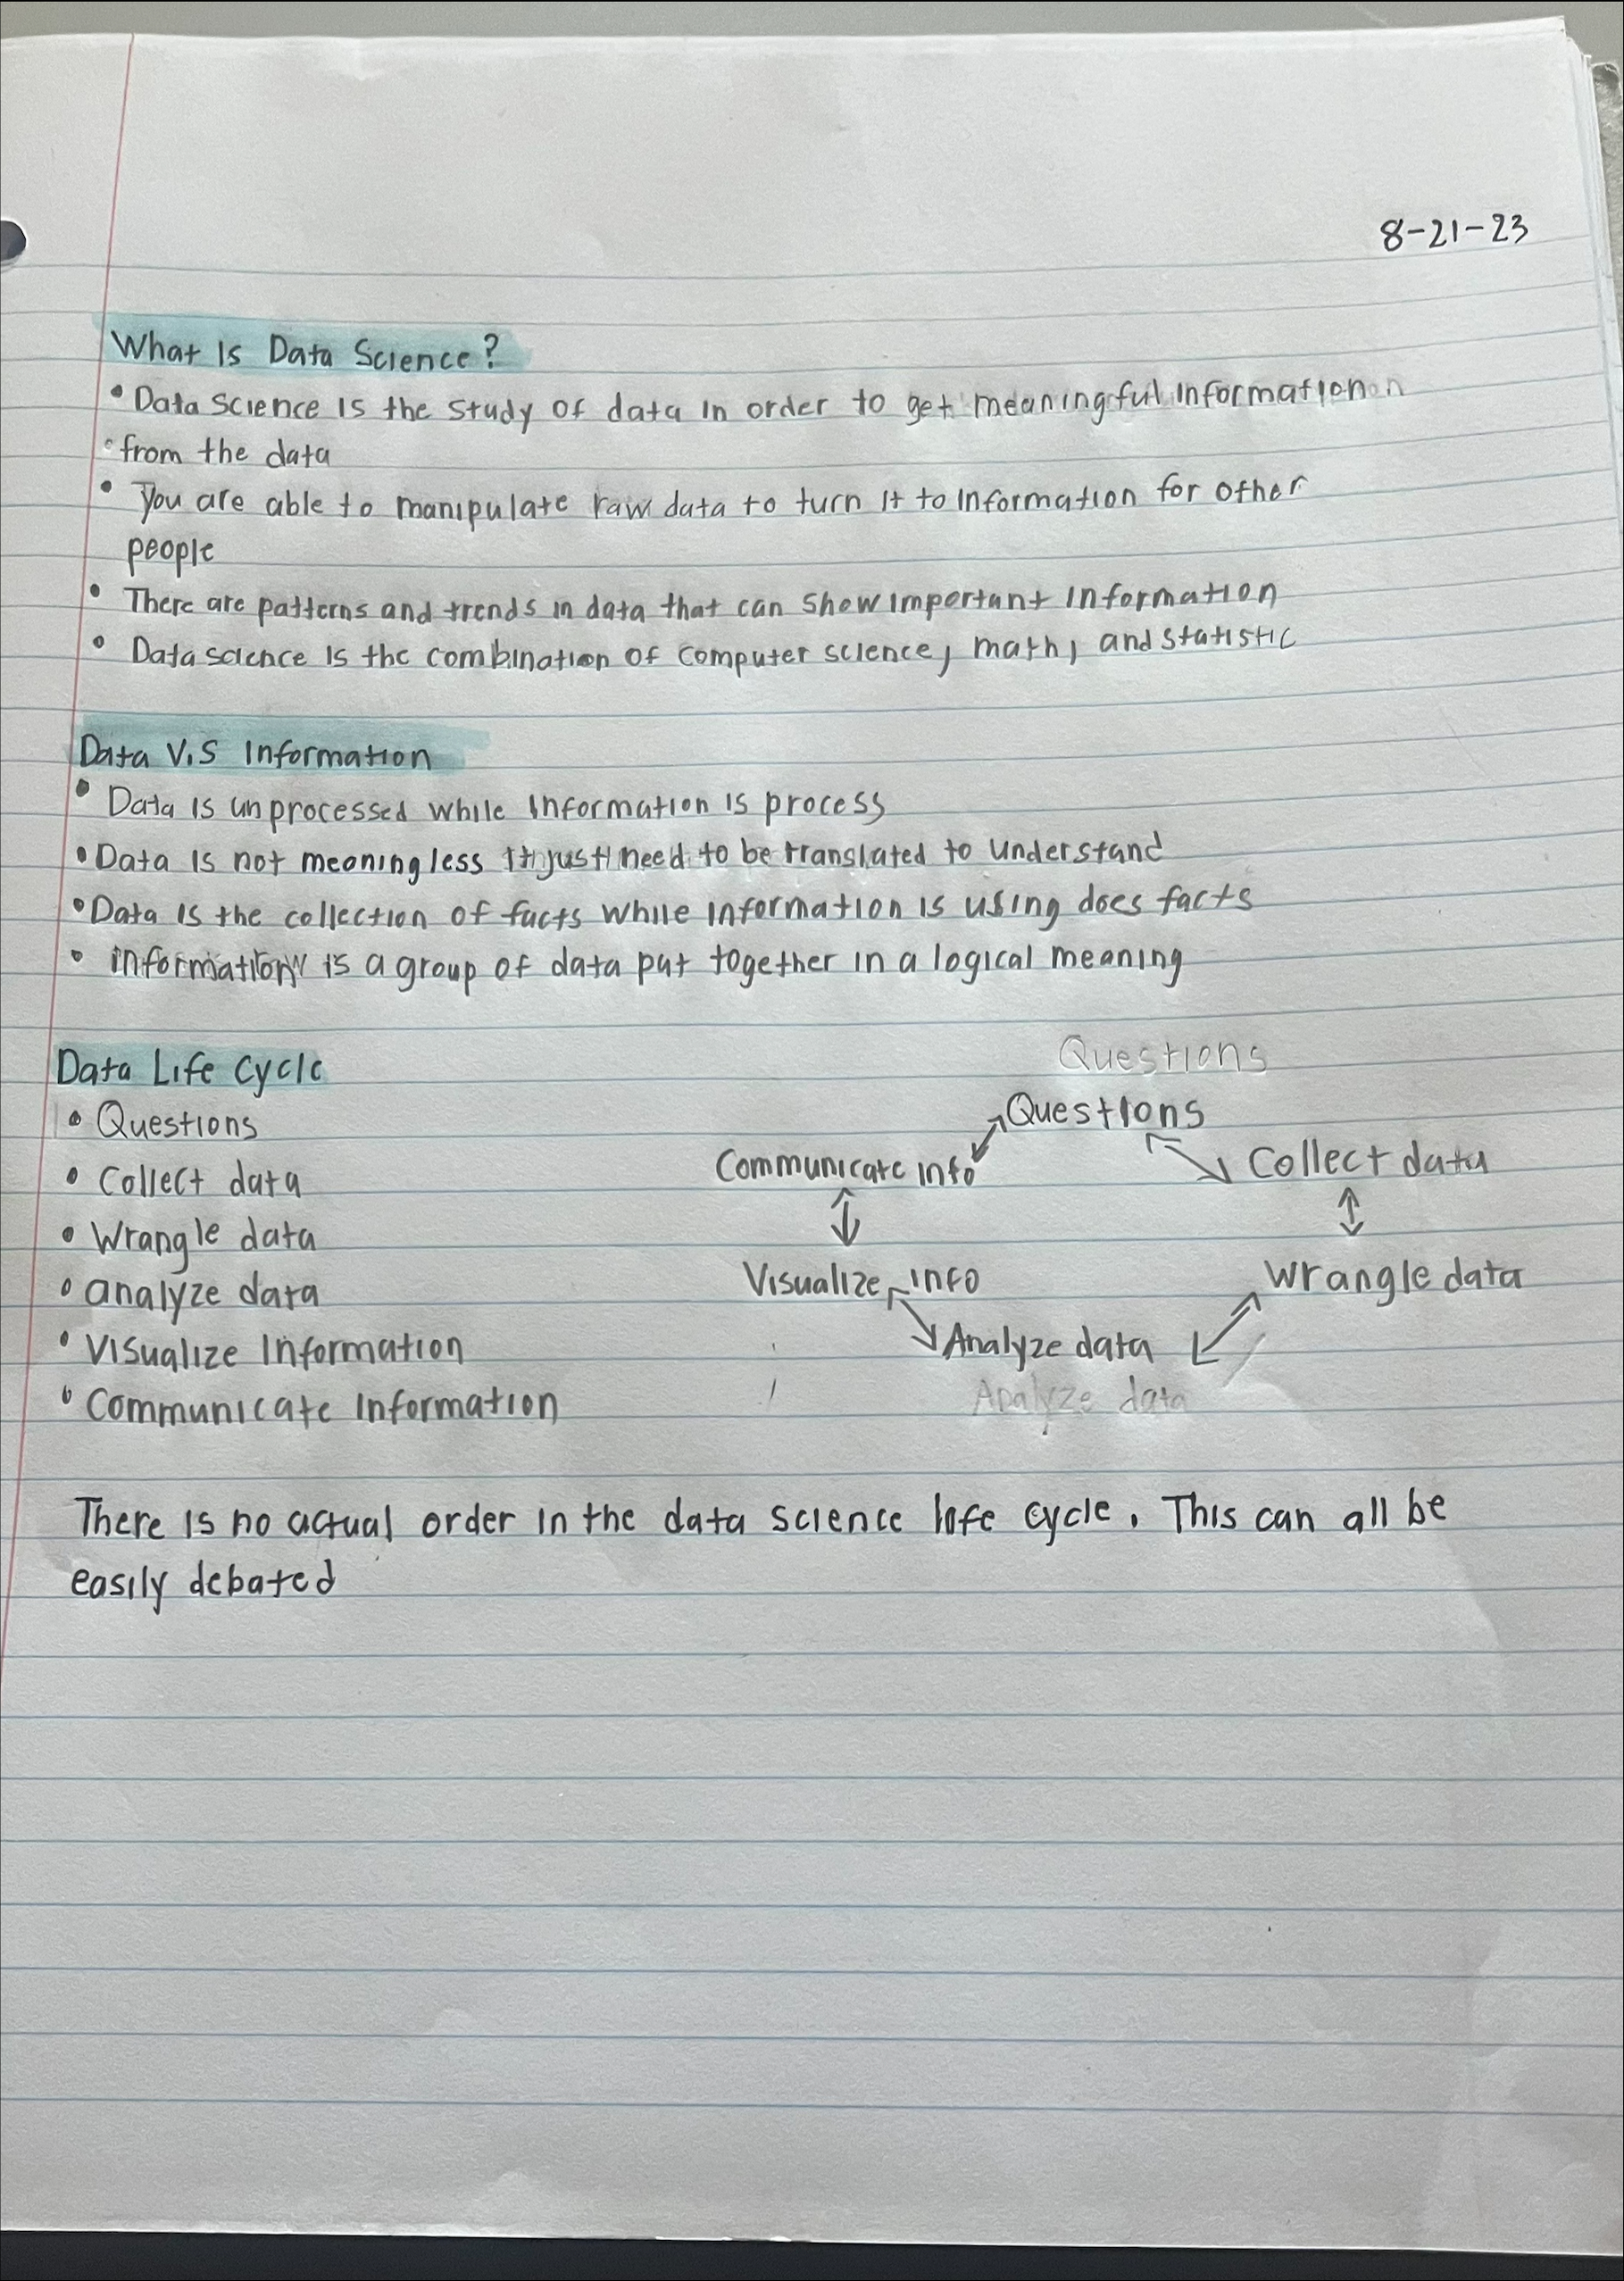 8-21-23
What Is Data Science?
• Data science is the study of data in order to get meaningful information
from the data
• You are able to manipulate raw data to turn it to information for other
people
• There are patterns and trends in data that can show important information
• Data science is the combination of computer science, math, and statistic
Data V.S Information
• Data is unprocessed while information is process
• Data is not meaningless it just need to be translated to understand
• Data is the collection of facts while information is using does facts
• information is a group of data put together in a logical meaning
Data Life Cycle
• Questions
• Collect data
• Wrangle data
• analyze data
• Visualize Information
• Communicate Information
Questions
Questions
Communicate info
Collect data
Visualize info
Wrangle data
Analyze data
Analyze data
There is no actual order in the data science life cycle. This can all be
easily debated